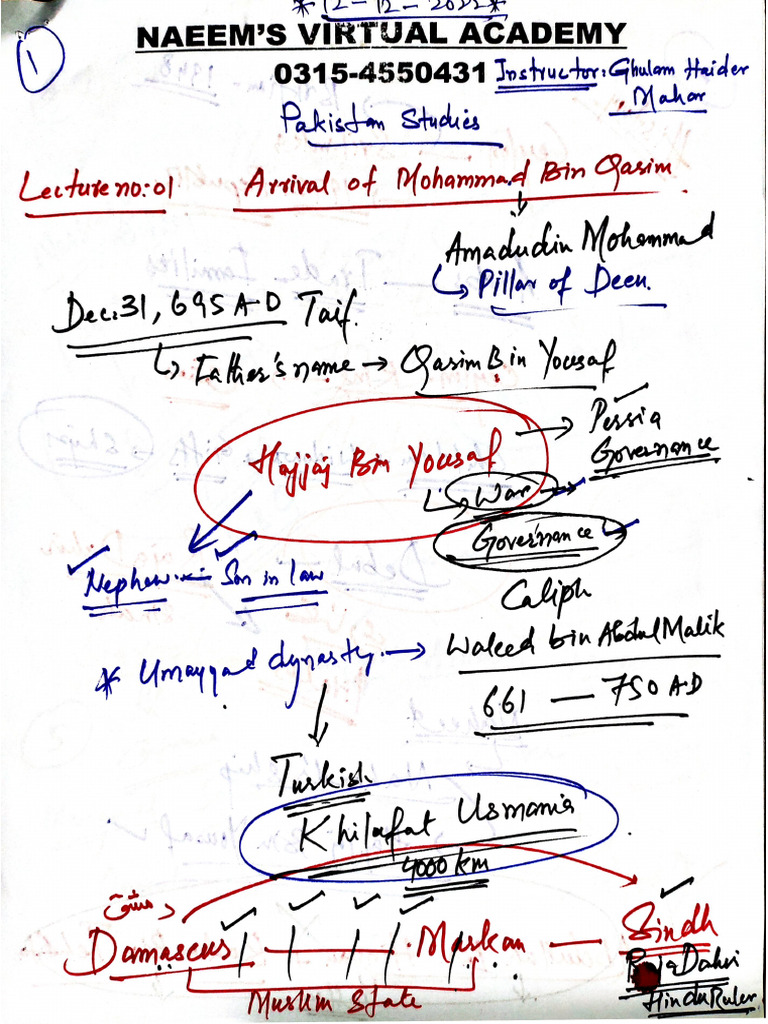 *12-12-2022*
1
NAEEM'S VIRTUAL ACADEMY
0315-4550431 Instructor: Ghulam Haider
Mahar
Pakistan Studies
Lecture no: 01 Arrival of Mohammad Bin Qasim
Amadudin Mohammad
Pillar of Deen.
Dec: 31, 695 A-D Taif.
Father's name → Qasim Bin Yousaf
Hajjaj Bin Yousaf → Persia
Governance
War →
Governance
Nephew — Son in law
Caliph
* Umayyad dynasty. → Waleed bin Abdal Malik
661 — 750 A.D
Turkish
Khilafat Usmania
4000 km
دمشق
Damascus — Markan — Sindh
Muslim State
Raja Dahir
Hindu Ruler